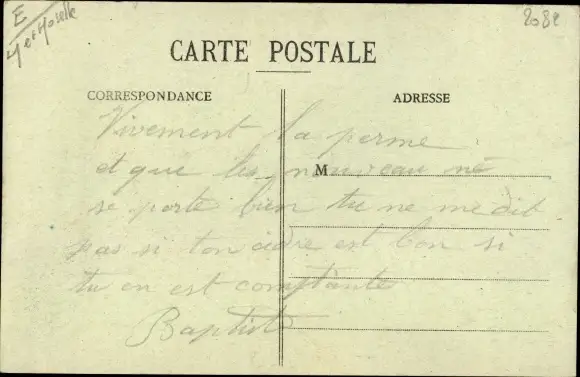 E
Met Moselle
2082
CARTE POSTALE
CORRESPONDANCE
ADRESSE
Vivement la perme
et que les nouveau né
M
se porte bien tu ne me dit
pas si ton cidre est bon si
tu en est comptante
Baptiste